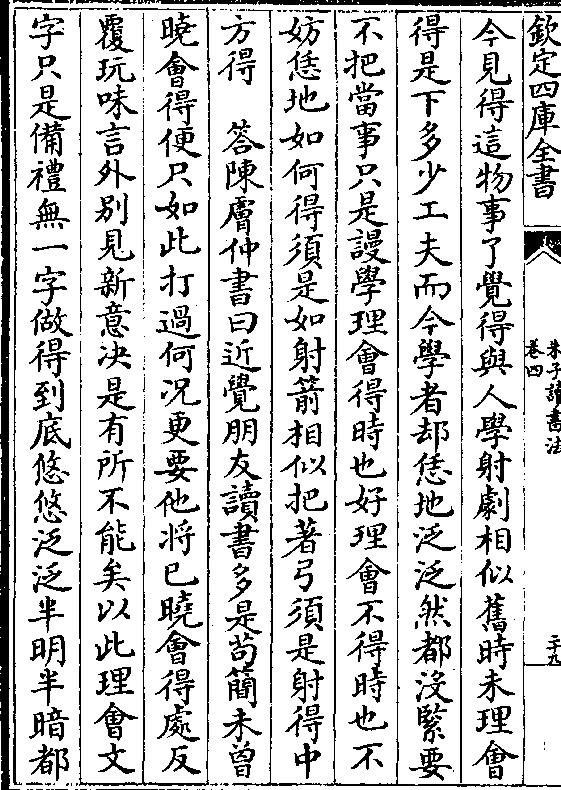 欽定四庫全書
朱子讀書法
卷四
二十九
今見得這物事了覺得與人學射劇相似舊時未理會
得是下多少工夫而今學者却恁地泛泛然都沒緊要
不把當事只是謾學理會得時也好理會不得時也不
妨恁地如何得須是如射箭相似把著弓須是射得中
方得　答陳膚仲書曰近覺朋友讀書多是苟簡未曾
曉會得便只如此打過何況更要他將已曉會得處反
覆玩味言外別見新意決是有所不能矣以此理會文
字只是備禮無一字做得到底悠悠泛泛半明半暗都